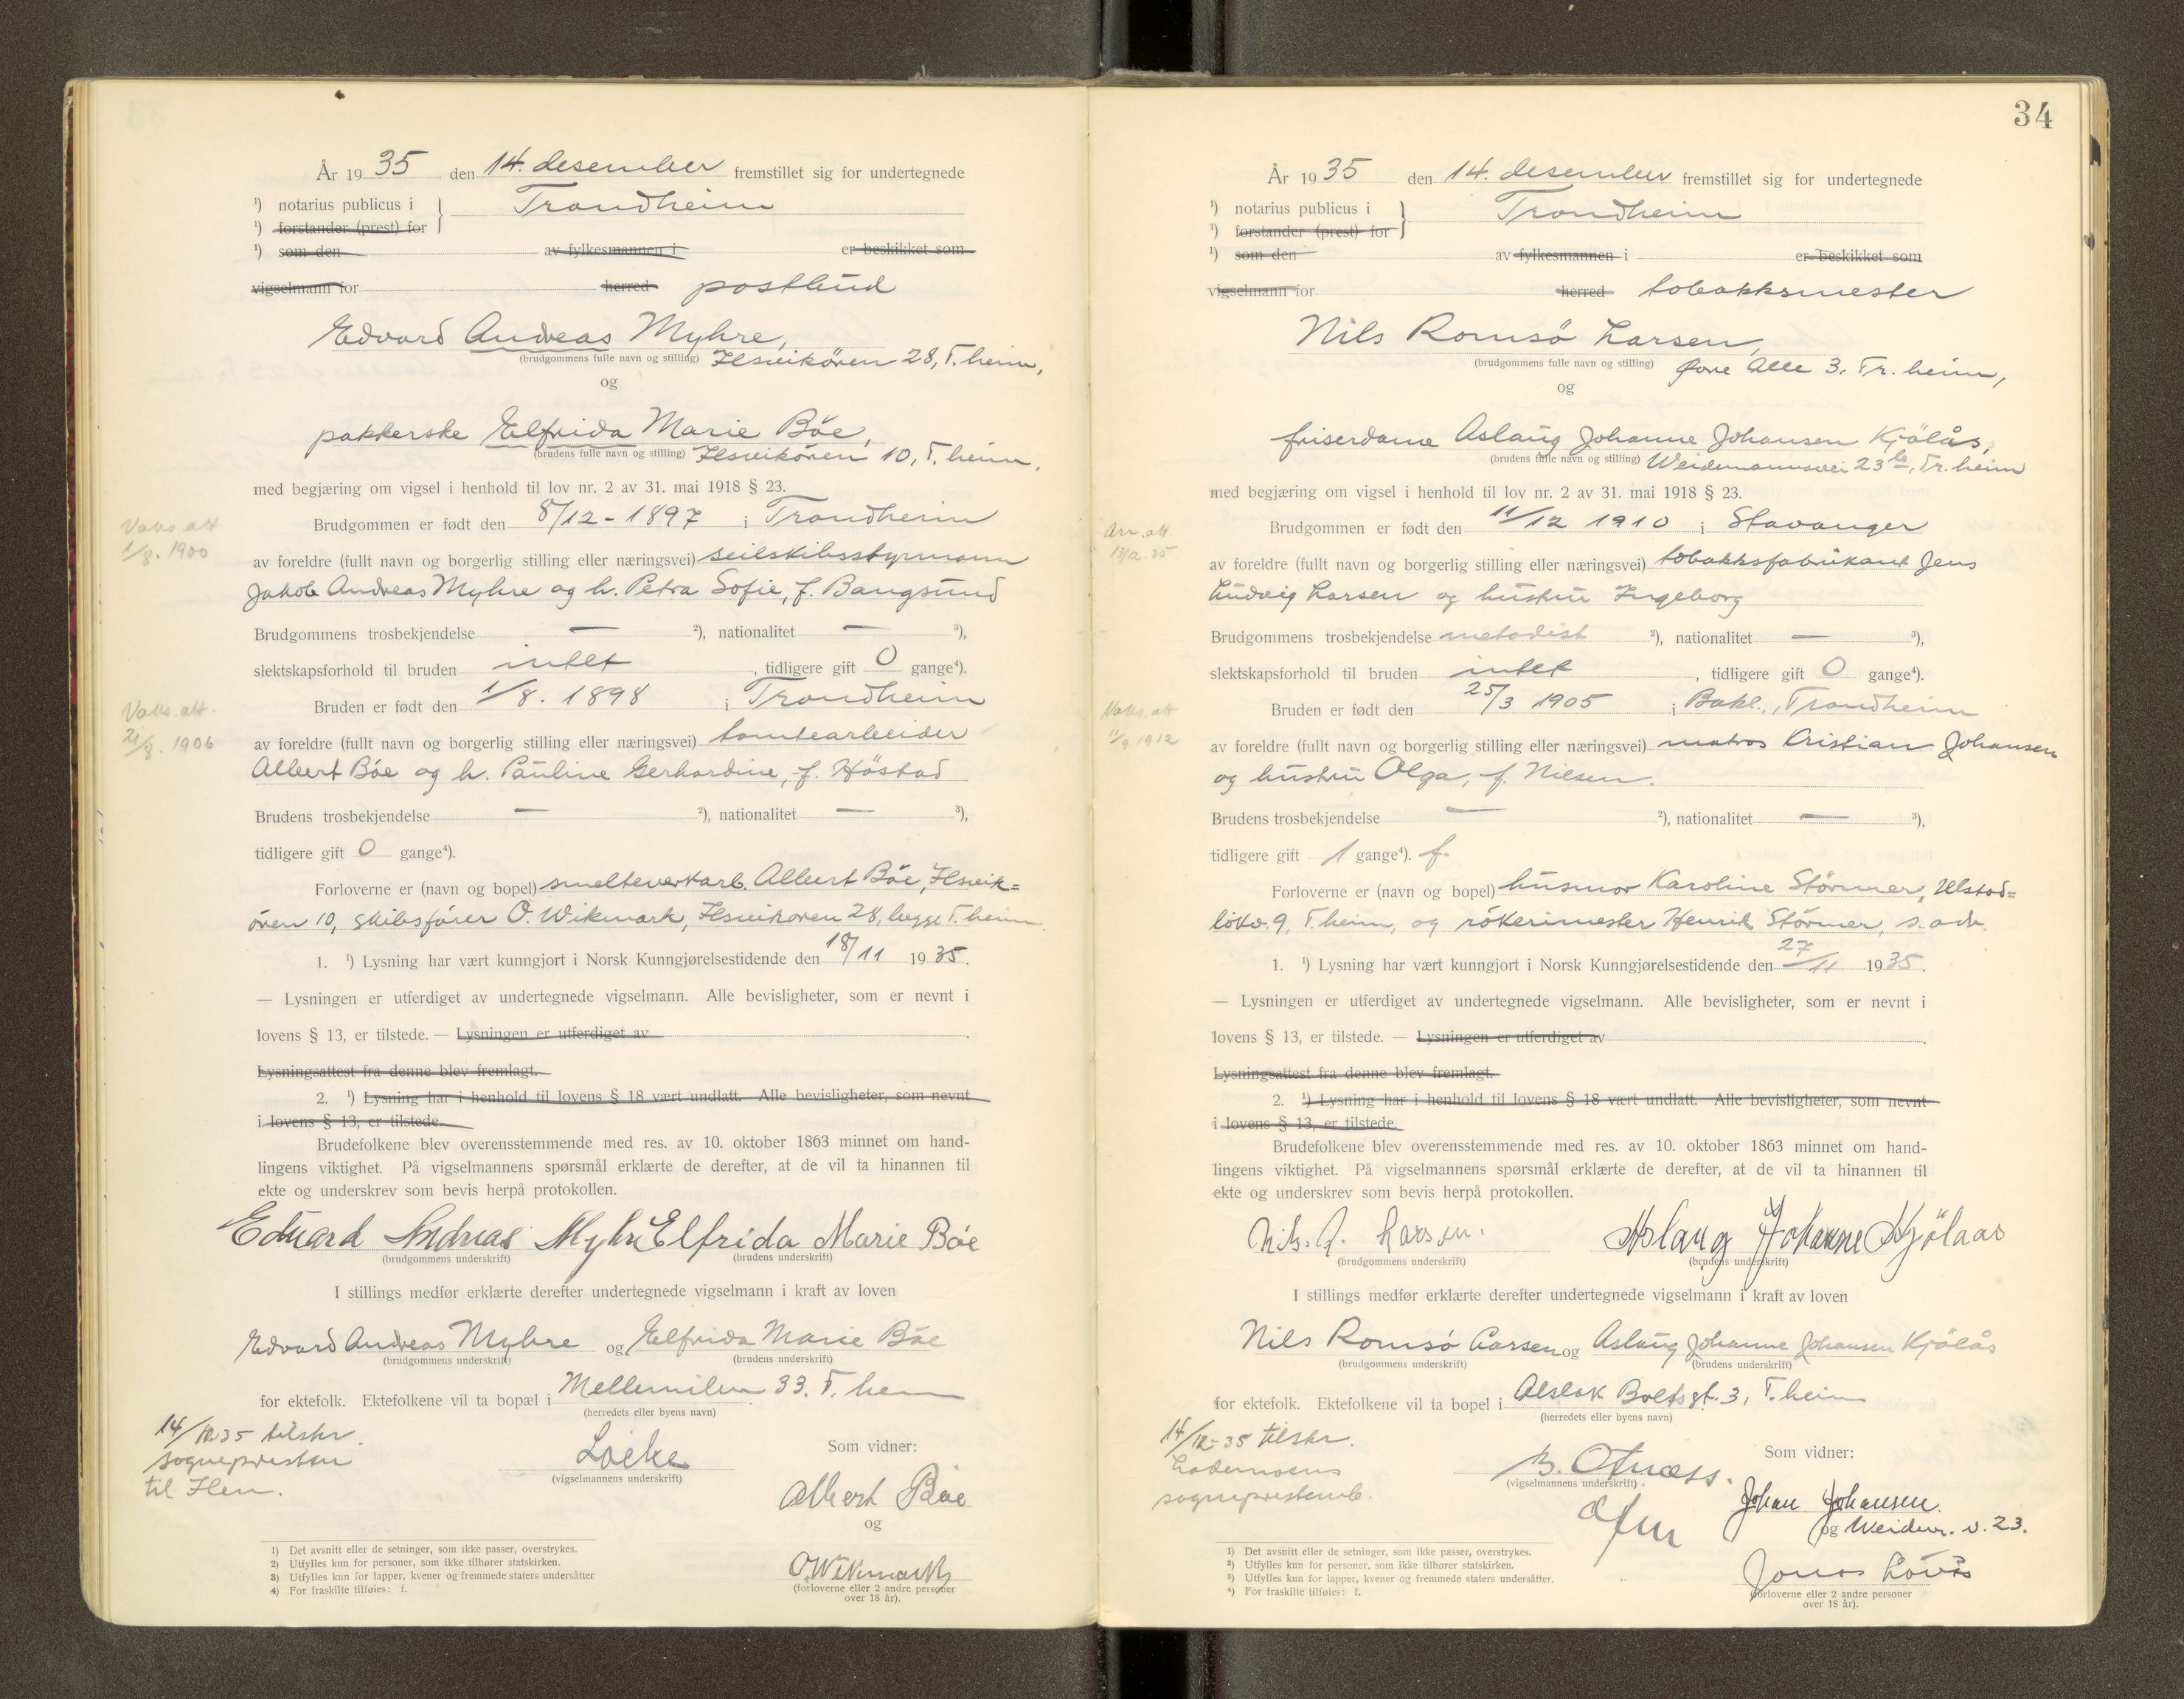 År 1935 den 14. desember fremstillet sig for undertegnede
¹) notarius publicus i } Trondheim
¹) forstander (prest) for
¹) som den av fylkesmannen i er beskikket som
vigselmann for herred postbud
Edvard Andreas Myhre,
(brudgommens fulle navn og stilling) Ilsvikören 28, T.heim,
og
pakkerske Elfrida Marie Böe,
(brudens fulle navn og stilling) Ilsvikören 10, T.heim.
med begjæring om vigsel i henhold til lov nr. 2 av 31. mai 1918 § 23.
Vaks. att
1/8. 1900
Brudgommen er født den 8/12 - 1897 i Trondheim
av foreldre (fullt navn og borgerlig stilling eller næringsvei) seilskibsstyrmann
Jakob Andreas Myhre og h. Petra Sofie, f. Bangsund
Brudgommens trosbekjendelse — ²), nationalitet — ³),
slektskapsforhold til bruden intet, tidligere gift 0 gange⁴).
Vaks. att.
21/8. 1906
Bruden er født den 1/8. 1898 i Trondheim
av foreldre (fullt navn og borgerlig stilling eller næringsvei) tomtearbeider
Albert Böe og h. Pauline Gerhardine, f. Höstad
Brudens trosbekjendelse — ²), nationalitet — ³),
tidligere gift 0 gange⁴).
Forloverne er (navn og bopel) smelteverkarb. Albert Böe, Ilsvik=
ören 10, skibsfører O. Wikmark, Ilsvikoren 28, begge T.heim.
1. ¹) Lysning har vært kunngjort i Norsk Kunngjørelsestidende den 18/11 1935.
— Lysningen er utferdiget av undertegnede vigselmann. Alle bevisligheter, som er nevnt i
lovens § 13, er tilstede. — Lysningen er utferdiget av
Lysningsattest fra denne blev fremlagt.
2. ¹) Lysning har i henhold til lovens § 18 vært undlatt. Alle bevisligheter, som nevnt
i lovens § 13, er tilstede.
Brudefolkene blev overensstemmende med res. av 10. oktober 1863 minnet om hand-
lingens viktighet. På vigselmannens spørsmål erklærte de derefter, at de vil ta hinannen til
ekte og underskrev som bevis herpå protokollen.
Edvard Andreas Myhre Elfrida Marie Böe
(brudgommens underskrift) (brudens underskrift)
I stillings medfør erklærte derefter undertegnede vigselmann i kraft av loven
Edvard Andreas Myhre og Elfrida Marie Böe
(brudgommens underskrift) (brudens underskrift)
for ektefolk. Ektefolkene vil ta bopæl i Mellemilen 33. T.heim
(herredets eller byens navn)
14/12-35 tilskr.
sognepresten
til Ilen.
(vigselmannens underskrift)
Som vidner:
Albert Böe
og
O. Wikmark
(forloverne eller 2 andre personer
over 18 år).
1) Det avsnitt eller de setninger, som ikke passer, overstrykes.
2) Utfylles kun for personer, som ikke tilhører statskirken.
3) Utfylles kun for lapper, kvener og fremmede staters undersåtter
4) For fraskilte tilføies: f.
34
År 1935 den 14. desember fremstillet sig for undertegnede
¹) notarius publicus i } Trondheim
¹) forstander (prest) for
¹) som den av fylkesmannen i er beskikket som
vigselmann for herred tobakksmester
Nils Romsö Larsen,
(brudgommens fulle navn og stilling) Övre Alle 3. Tr.heim,
og
friserdame Aslaug Johanne Johansen Kjölås,
(brudens fulle navn og stilling) Weidemannsvei 23 b, Tr.heim
med begjæring om vigsel i henhold til lov nr. 2 av 31. mai 1918 § 23.
Brudgommen er født den 11/12 1910 i Stavanger
av foreldre (fullt navn og borgerlig stilling eller næringsvei) tobakksfabrikant Jens
Ludvig Larsen og hustru Ingeborg
Brudgommens trosbekjendelse metodist ²), nationalitet — ³),
slektskapsforhold til bruden intet, tidligere gift 0 gange⁴).
Vaks. att
11/9 1912
Bruden er født den 25/3 1905 i Bakl., Trondheim
av foreldre (fullt navn og borgerlig stilling eller næringsvei) matros Kristian Johansen
og hustru Olga, f. Nilsen.
Brudens trosbekjendelse — ²), nationalitet — ³),
tidligere gift 1 gange⁴). f.
Forloverne er (navn og bopel) husmor Karoline Störmer, Ulstad=
lökv. 9, T.heim, og rökerimester Henrik Störmer, s. adr.
1. ¹) Lysning har vært kunngjort i Norsk Kunngjørelsestidende den 27/11 1935.
— Lysningen er utferdiget av undertegnede vigselmann. Alle bevisligheter, som er nevnt i
lovens § 13, er tilstede. — Lysningen er utferdiget av
Lysningsattest fra denne blev fremlagt.
2. ¹) Lysning har i henhold til lovens § 18 vært undlatt. Alle bevisligheter, som nevnt
i lovens § 13, er tilstede.
Brudefolkene blev overensstemmende med res. av 10. oktober 1863 minnet om hand-
lingens viktighet. På vigselmannens spørsmål erklærte de derefter, at de vil ta hinannen til
ekte og underskrev som bevis herpå protokollen.
Nils. R. Larsen. Aslaug Johanne Kjölaas
(brudgommens underskrift) (brudens underskrift)
I stillings medfør erklærte derefter undertegnede vigselmann i kraft av loven
Nils Romsö Larsen og Aslaug Johanne Johansen Kjölås
(brudgommens underskrift) (brudens underskrift)
for ektefolk. Ektefolkene vil ta bopel i Aslak Boltsgt. 3, T.heim
(herredets eller byens navn)
14/12-35 tilskr.
Lademoens
sogneprestemb.
(vigselmannens underskrift).
Som vidner:
Johan Johansen.
og Weidem. v. 23.
Jonas
(forloverne eller 2 andre personer
over 18 år).
¹) Det avsnitt eller de setninger, som ikke passer, overstrykes.
²) Utfylles kun for personer, som ikke tilhører statskirken.
³) Utfylles kun for lapper, kvener og fremmede staters undersåtter.
⁴) For fraskilte tilføies: f.